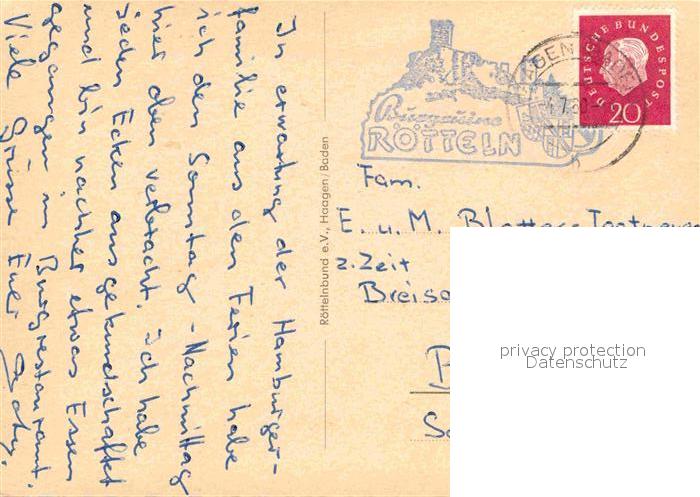 In erwartung der Hamburger-
familie aus den Ferien habe
ich den Sonntag-Nachmittag
hier oben verbracht. Ich habe
jeden Ecken ausgekundschaftet
und bin nachher etwas Essen
gegangen in Burgrestaurant.
Viele Grüsse Euer
Röttelnbund e.V., Haagen/Baden
Burgruine
RÖTTELN
DEUTSCHE BUNDESPOST
20
Fam.
E. u. M.
z. Zeit
privacy protection
Datenschutz